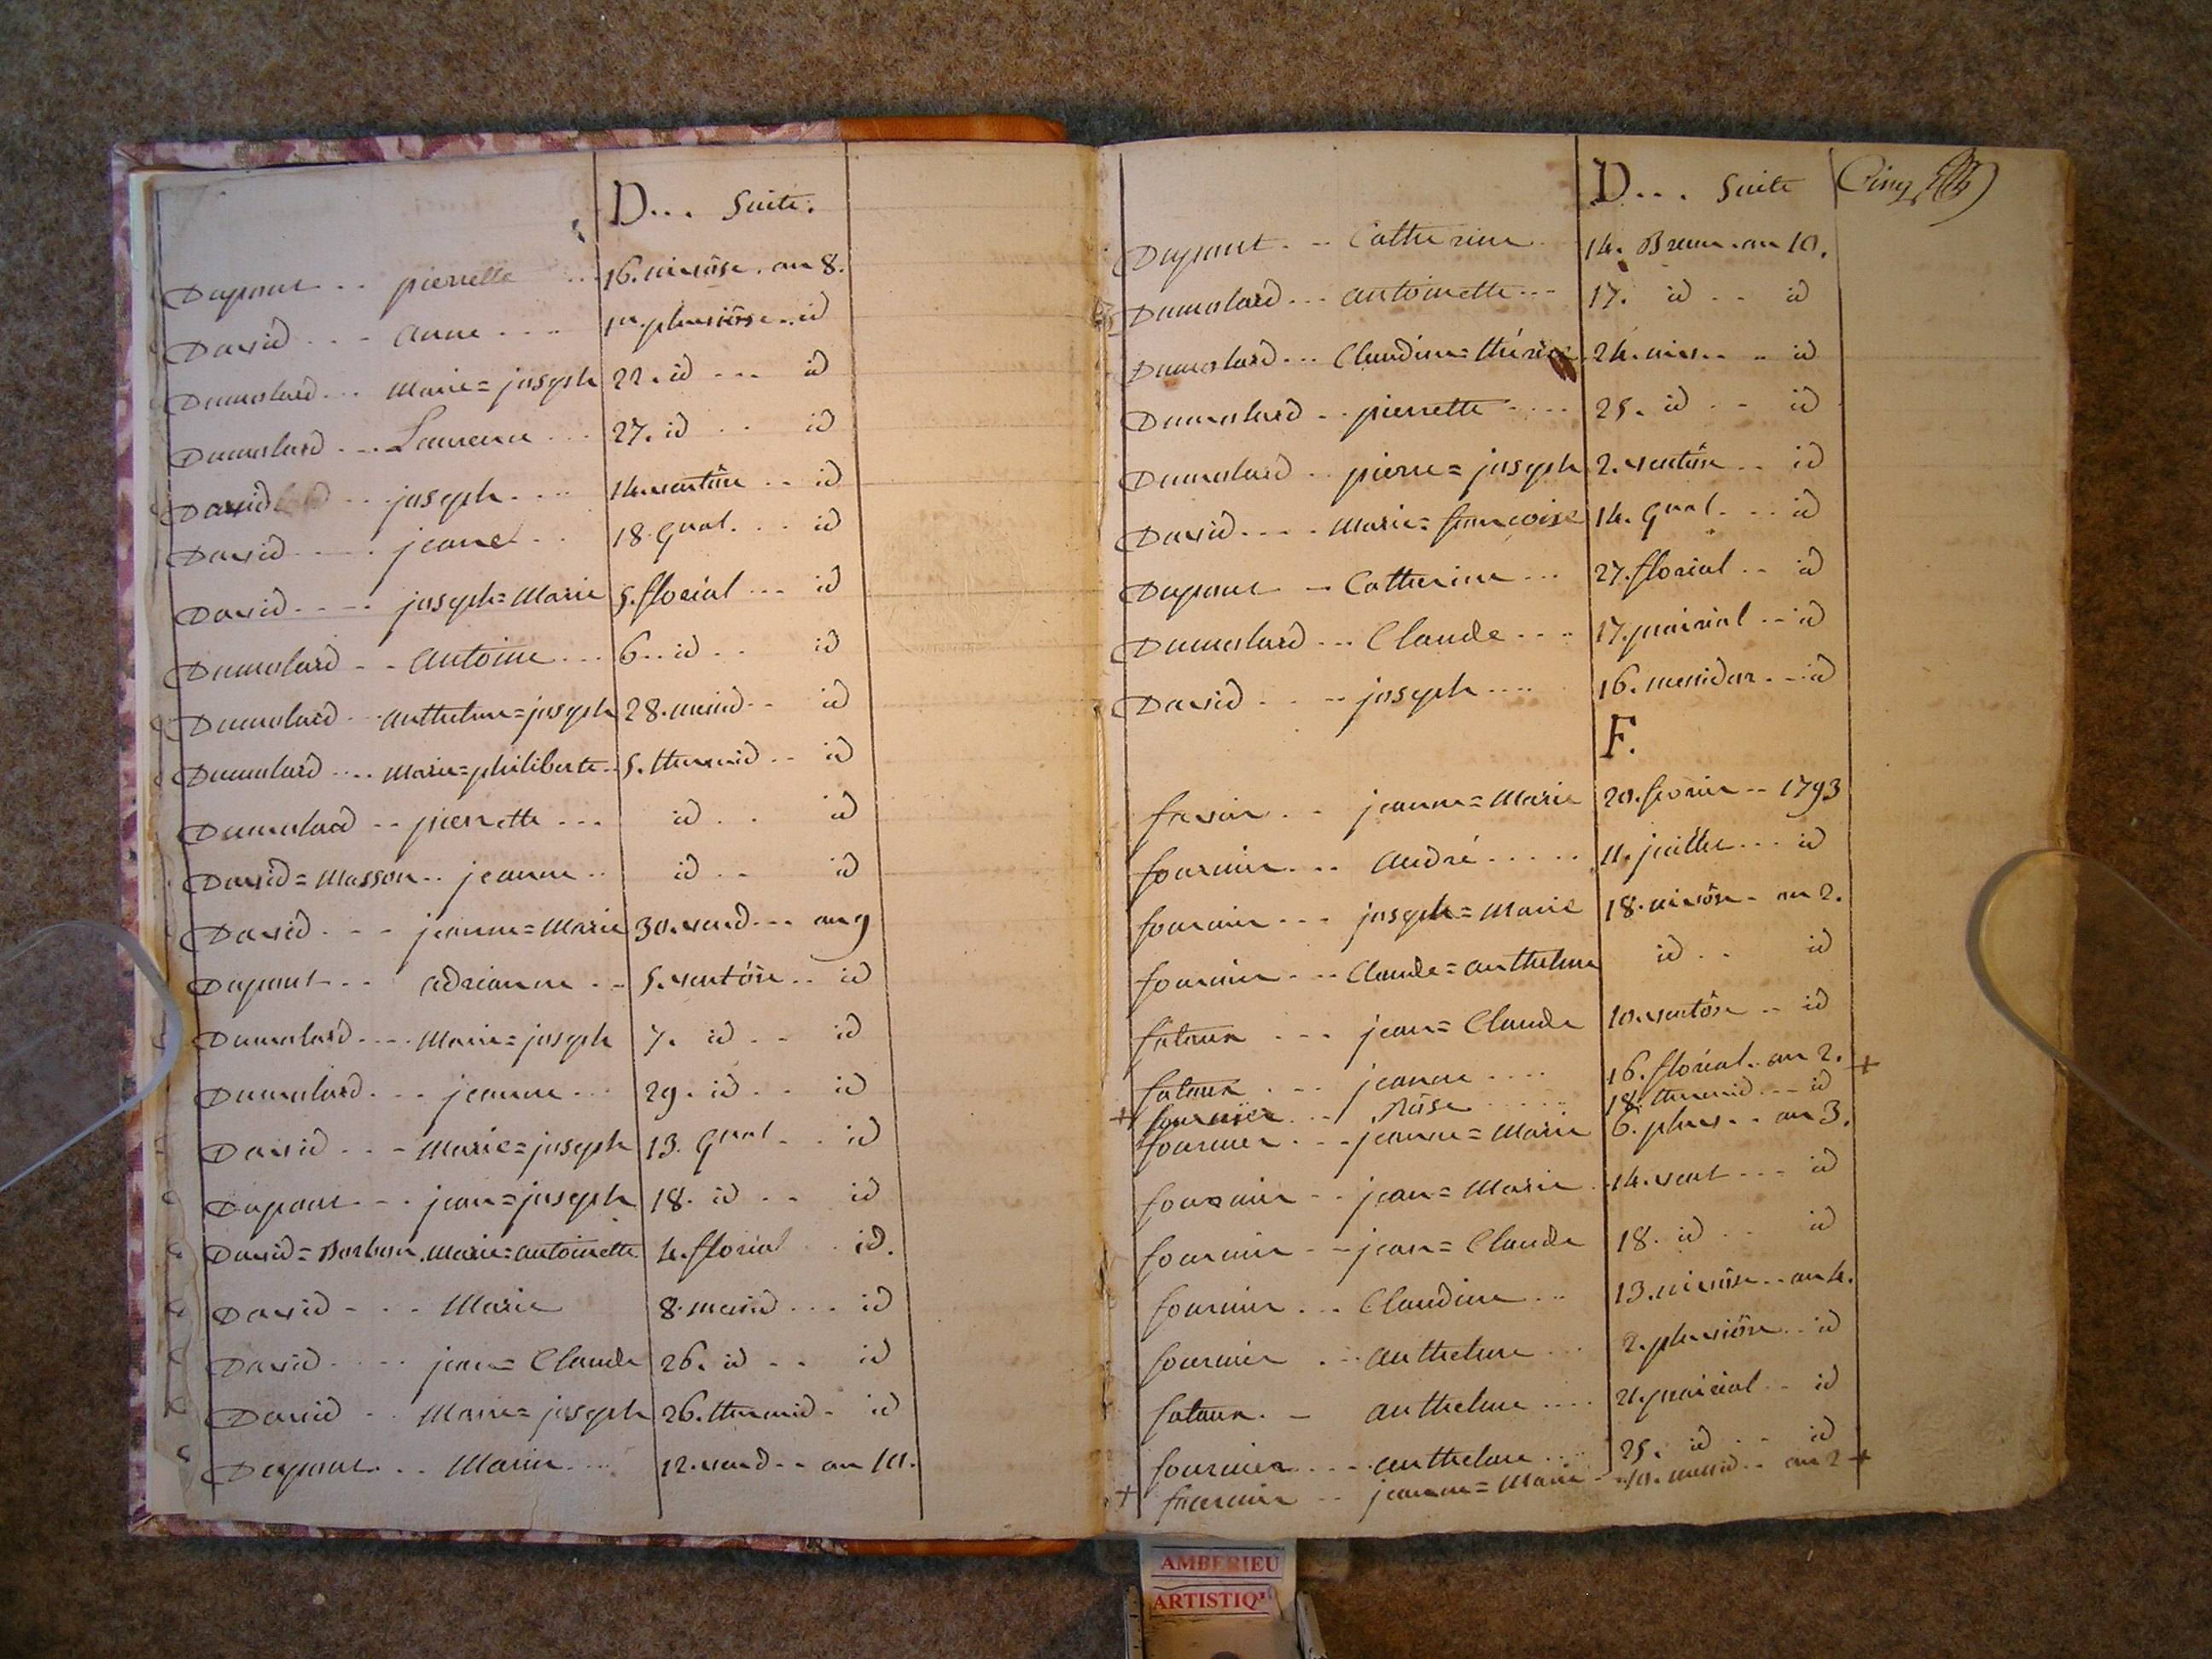 D... Suite.
Dupont .. pierrette ... 16. nivôse. an 8.
David ... anne .... 1er. pluviôse .. id
Dumolard ... Marie=joseph 22. id ... id
Dumolard ... Laurence ... 27. id .. id
David ... joseph .... 14. ventôse .. id
David ..... jeane .. 18. gnal. ... id
David ..... joseph=Marie 5. floréal ... id
Dumolard .. antoine ... 6 .. id .. id
Dumolard ... anthelme=joseph 28. messid .. id
Dumolard .... Marie=philiberte .. 5. thermid .. id
Dumolard .. pierrette ... id .. id
David=Masson .. jeanne .. id .. id
David ... jeanne=Marie 30. vend ... an 9
Dupont .. adrianne .. 5. ventôse .. id
Dumolard .... Marie=joseph 7. id .. id
Dumolard ... jeanne ... 29. id .. id
David ... Marie=joseph 13. gnal .. id
Dupont ... jean=joseph 18. id .. id
David=Barbon . Marie=antoinette 4. floréal .. id.
David ... Marie 8. messid ... id
David ..... jean=Claude 26. id .. id
David .. Marie=joseph 26. thermid . id
Dupont ... Marie .... 12. vend .. an 10.
D... Suite Cinq
Dupont ... Catherine . 14. Brum. an 10.
Dumolard ... antoinette ... 17. id .. id
Dumolard ... Claudine=thérèse . 24. niv. .. id
Dumolard .. pierrette .... 25. id .. id
Dumolard .. pierre=joseph 2. ventôse .. id
David .... Marie=françoise 14. gnal. ... id
Dupont .. Catherine ... 27. floréal .. id
Dumolard ... Claude .... 17. prairial .. id
David .... joseph .... 16. messidor ... id
F.
.. jeanne=Marie 20. février .. 1793
fournier ... andré ..... 11. juillet ... id
fournier ... joseph=Marie 18. nivôse . an 2.
fournier ... Claude=anthelme id .. id
fatoux ... jean=Claude 10. ventôse .. id
fatoux ... jeanne .... 16. floréal .. an 2.
+ fournier ... Rôse ..... 18. thermid ... id +
fournier ... jeanne=Marie 6. pluv. .. an 3.
fournier .. jean=Marie . 14. vent ... id
fournier .. jean=Claude 18. id .. id
fournier ... Claudine ... 13. nivôse .. an 4.
fournier ... anthelme ... 2. pluviôse .. id
fatoux . . anthelme .... 21. prairial .. id
fournier .... anthelme ... 25. id .. id
+ fournier .. jeanne=Marie .. 10. messid .. an 2 +
AMBERIEU
ARTISTIQ